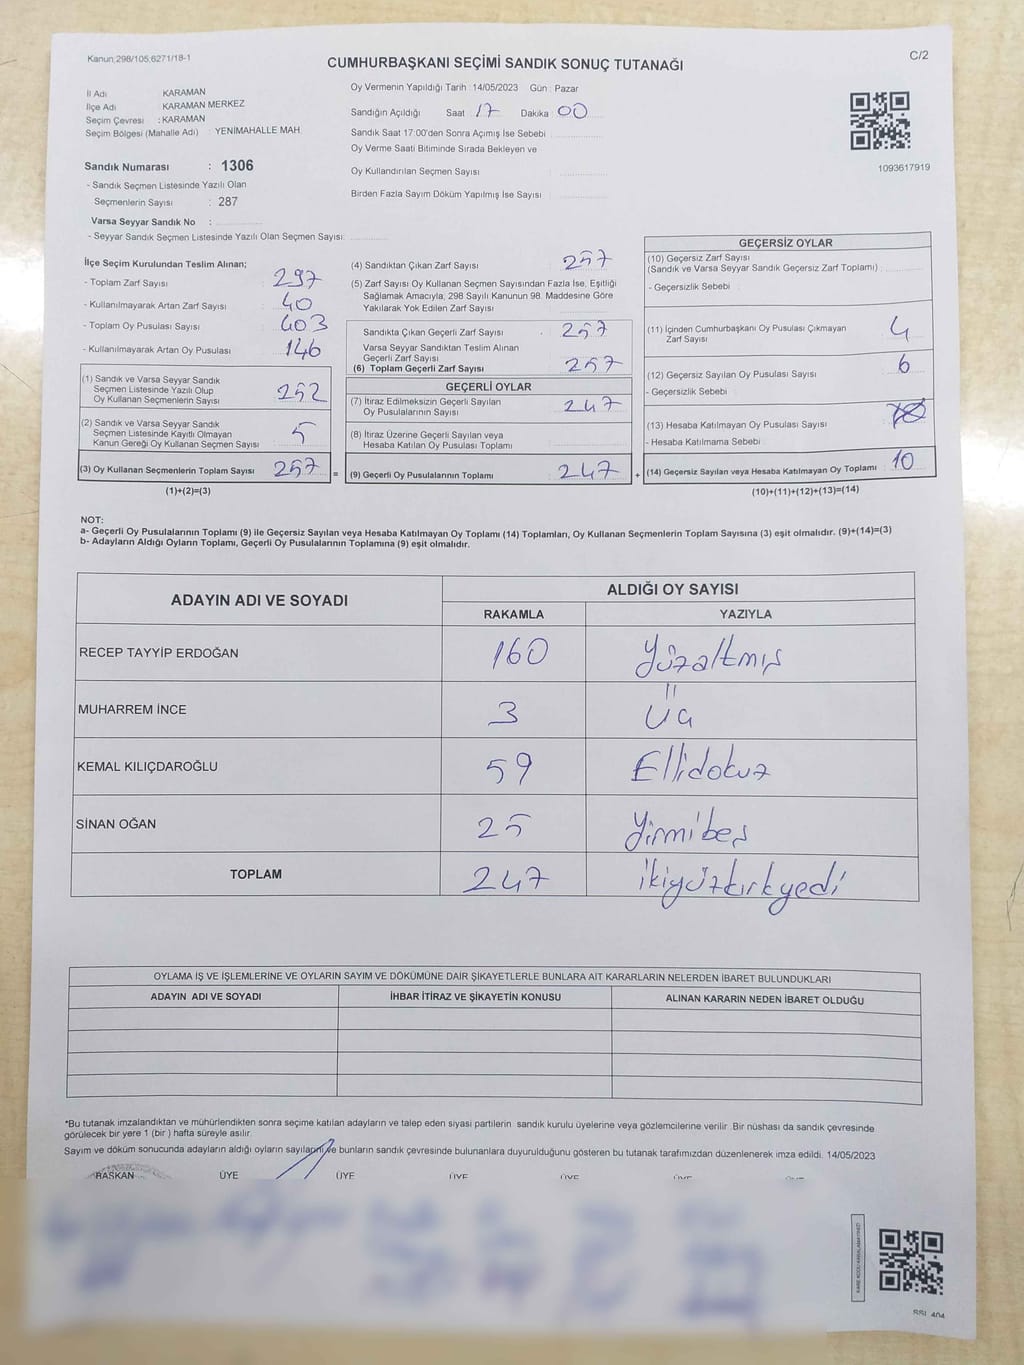 Kanun;298/105;6271/18-1
C/2
CUMHURBAŞKANI SEÇİMİ SANDIK SONUÇ TUTANAĞI
İl Adı KARAMAN
İlçe Adı KARAMAN MERKEZ
Seçim Çevresi : KARAMAN
Seçim Bölgesi (Mahalle Adı) : YENİMAHALLE MAH.
Sandık Numarası : 1306
- Sandık Seçmen Listesinde Yazılı Olan
Seçmenlerin Sayısı : 287
Varsa Seyyar Sandık No :
- Seyyar Sandık Seçmen Listesinde Yazılı Olan Seçmen Sayısı:
Oy Vermenin Yapıldığı Tarih : 14/05/2023 Gün : Pazar
Sandığın Açıldığı Saat : 17 Dakika : 00
Sandık Saat 17:00'den Sonra Açımış İse Sebebi :
Oy Verme Saati Bitiminde Sırada Bekleyen ve
Oy Kullandırılan Seçmen Sayısı :
Birden Fazla Sayım Döküm Yapılmış İse Sayısı :
1093617919
İlçe Seçim Kurulundan Teslim Alınan;
- Toplam Zarf Sayısı : 297
- Kullanılmayarak Artan Zarf Sayısı : 40
- Toplam Oy Pusulası Sayısı : 403
- Kullanılmayarak Artan Oy Pusulası : 146
(1) Sandık ve Varsa Seyyar Sandık
Seçmen Listesinde Yazılı Olup
Oy Kullanan Seçmenlerin Sayısı : 252
(2) Sandık ve Varsa Seyyar Sandık
Seçmen Listesinde Kayıtlı Olmayan
Kanun Gereği Oy Kullanan Seçmen Sayısı : 5
(3) Oy Kullanan Seçmenlerin Toplam Sayısı : 257 =
(1)+(2)=(3)
(4) Sandıktan Çıkan Zarf Sayısı : 257
(5) Zarf Sayısı Oy Kullanan Seçmen Sayısından Fazla İse, Eşitliği
Sağlamak Amacıyla; 298 Sayılı Kanunun 98. Maddesine Göre
Yakılarak Yok Edilen Zarf Sayısı :
Sandıkta Çıkan Geçerli Zarf Sayısı : 257
Varsa Seyyar Sandıktan Teslim Alınan
Geçerli Zarf Sayısı :
(6) Toplam Geçerli Zarf Sayısı : 257
GEÇERLİ OYLAR
(7) İtiraz Edilmeksizin Geçerli Sayılan
Oy Pusulalarının Sayısı : 247
(8) İtiraz Üzerine Geçerli Sayılan veya
Hesaba Katılan Oy Pusulası Toplamı :
(9) Geçerli Oy Pusulalarının Toplamı : 247 +
GEÇERSİZ OYLAR
(10) Geçersiz Zarf Sayısı
(Sandık ve Varsa Seyyar Sandık Geçersiz Zarf Toplamı) :
- Geçersizlik Sebebi :
(11) İçinden Cumhurbaşkanı Oy Pusulası Çıkmayan
Zarf Sayısı : 4
(12) Geçersiz Sayılan Oy Pusulası Sayısı : 6
- Geçersizlik Sebebi :
(13) Hesaba Katılmayan Oy Pusulası Sayısı :
- Hesaba Katılmama Sebebi :
(14) Geçersiz Sayılan veya Hesaba Katılmayan Oy Toplamı : 10
(10)+(11)+(12)+(13)=(14)
NOT:
a- Geçerli Oy Pusulalarının Toplamı (9) ile Geçersiz Sayılan veya Hesaba Katılmayan Oy Toplamı (14) Toplamları, Oy Kullanan Seçmenlerin Toplam Sayısına (3) eşit olmalıdır. (9)+(14)=(3)
b- Adayların Aldığı Oyların Toplamı, Geçerli Oy Pusulalarının Toplamına (9) eşit olmalıdır.
ADAYIN ADI VE SOYADI ALDIĞI OY SAYISI
RAKAMLA YAZIYLA
RECEP TAYYİP ERDOĞAN 160 Yüzaltmış
MUHARREM İNCE 3 Üç
KEMAL KILIÇDAROĞLU 59 Ellidokuz
SİNAN OĞAN 25 Yirmibeş
TOPLAM 247 ikiyüzkırkyedi
OYLAMA İŞ VE İŞLEMLERİNE VE OYLARIN SAYIM VE DÖKÜMÜNE DAİR ŞİKAYETLERLE BUNLARA AİT KARARLARIN NELERDEN İBARET BULUNDUKLARI
ADAYIN ADI VE SOYADI İHBAR İTİRAZ VE ŞİKAYETİN KONUSU ALINAN KARARIN NEDEN İBARET OLDUĞU
*Bu tutanak imzalandıktan ve mühürlendikten sonra seçime katılan adayların ve talep eden siyasi partilerin sandık kurulu üyelerine veya gözlemcilerine verilir .Bir nüshası da sandık çevresinde
görülecek bir yere 1 (bir ) hafta süreyle asılır.
Sayım ve döküm sonucunda adayların aldığı oyların sayılarını ve bunların sandık çevresinde bulunanlara duyurulduğunu gösteren bu tutanak tarafımızdan düzenlenerek imza edildi. 14/05/2023
BAŞKAN ÜYE ÜYE ÜYE ÜYE ÜYE ÜYE